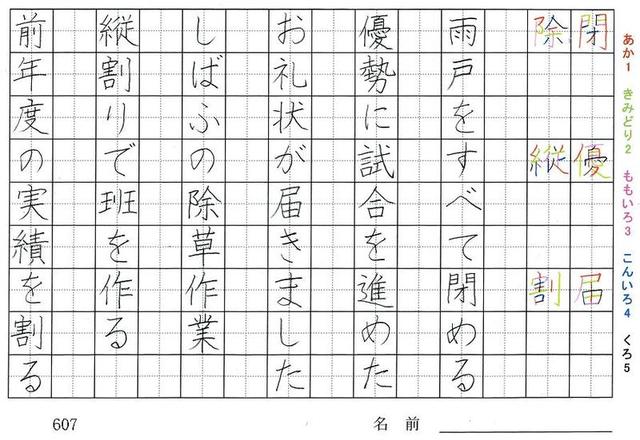 あか1 きみどり2 ももいろ3 こんいろ4 くろ5
閉 優 届
除 縦 割
雨戸をすべて閉める
優勢に試合を進めた
お礼状が届きました
しばふの除草作業
縦割りで班を作る
前年度の実績を割る
607
名前